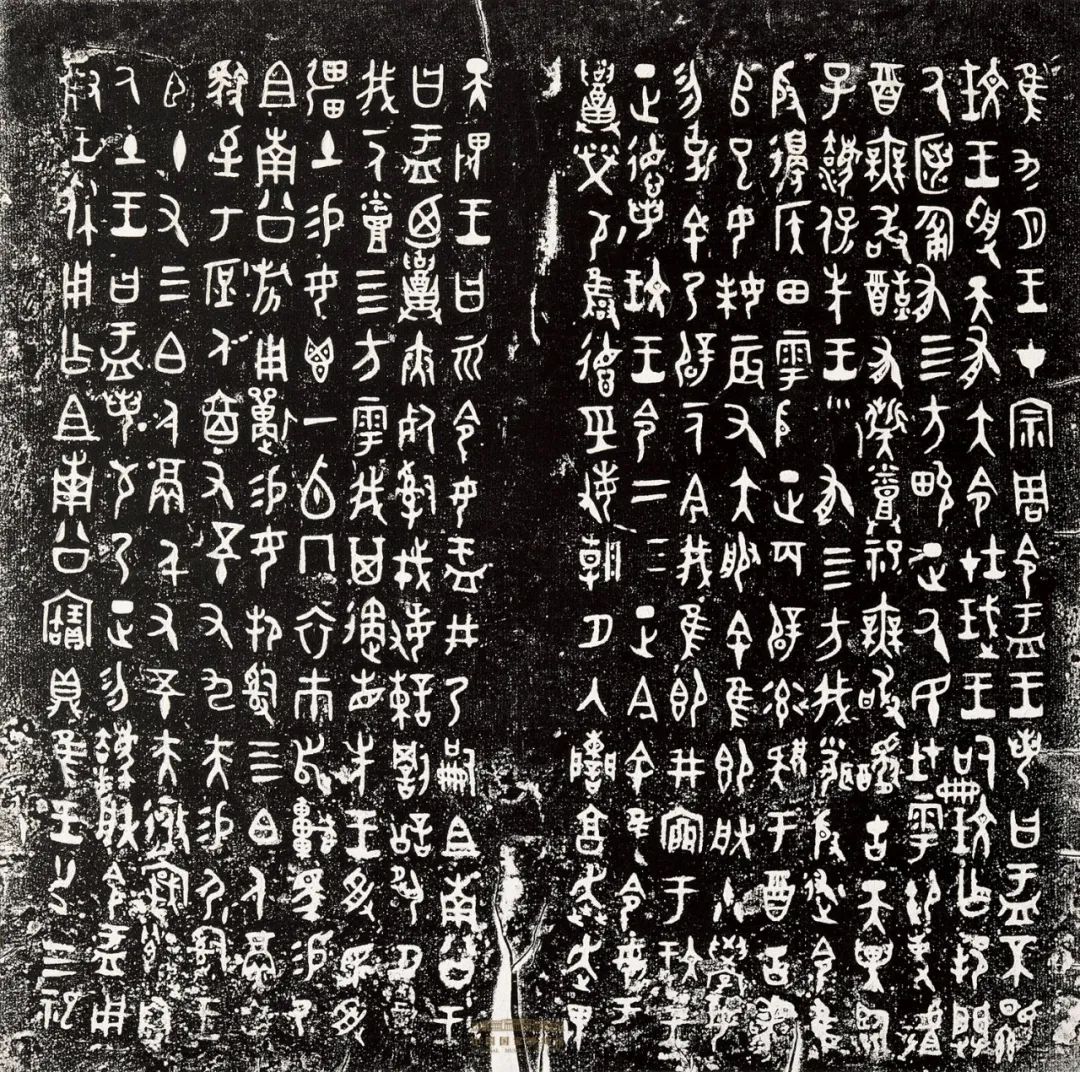 隹九月王才宗周令盂王若曰盂不顯
玟王受天有大令在珷王嗣玟乍邦闢
厥匿匍有四方畯正厥民在雩御事𠭯
酉無敢酖有祡烝祀無敢擾古天異臨
子灋保先王有四方我聞殷述令隹
殷邊侯田雩殷正百辟率肄于酉古喪
𠂤巳女妹辰又大服余隹即朕小學女
勿克余乃辟一人今我隹即井廩于玟王
正德若玟王令二三正今余隹令女盂
召榮敬雍德經敏朝夕入讕享奔走畏
天畏王曰𠀠令女盂井乃嗣且南公王
曰盂迺召夾死𤔲戎敏諫罰訟夙夕召
我一人烝四方雩我其遹省先王受民受
疆土易女鬯一卣冂衣巿舄車馬易乃
且南公旂用狩易女邦𤔲四白人鬲自
馭至于庶人六百又五十又九夫易尸𤔲
王臣十又三白人鬲千又五十夫遷自
厥土王曰盂若敬乃正勿灋朕令盂用
對王休用乍且南公寶鼎隹王廿又三祀